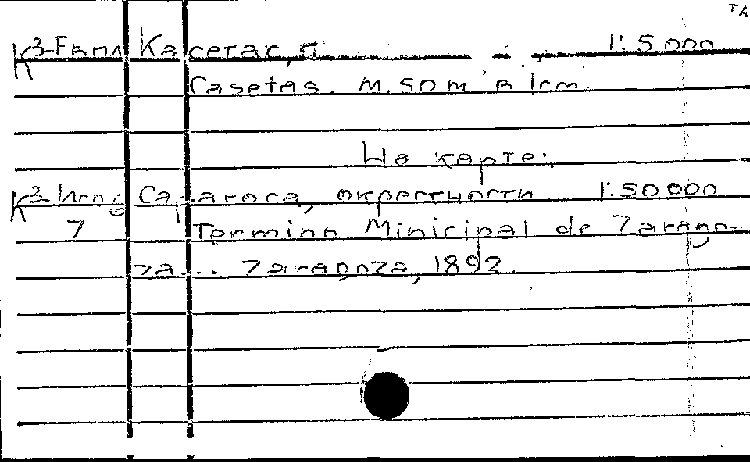 К3- Касетас, п. 1:5.000
Casetas. M. 50 m. a 1cm.
На карте:
К3- Сарагоса, окрестности 1:50000
7 Termino Minicipal de Zarago-
za... Zaragoza, 1892.